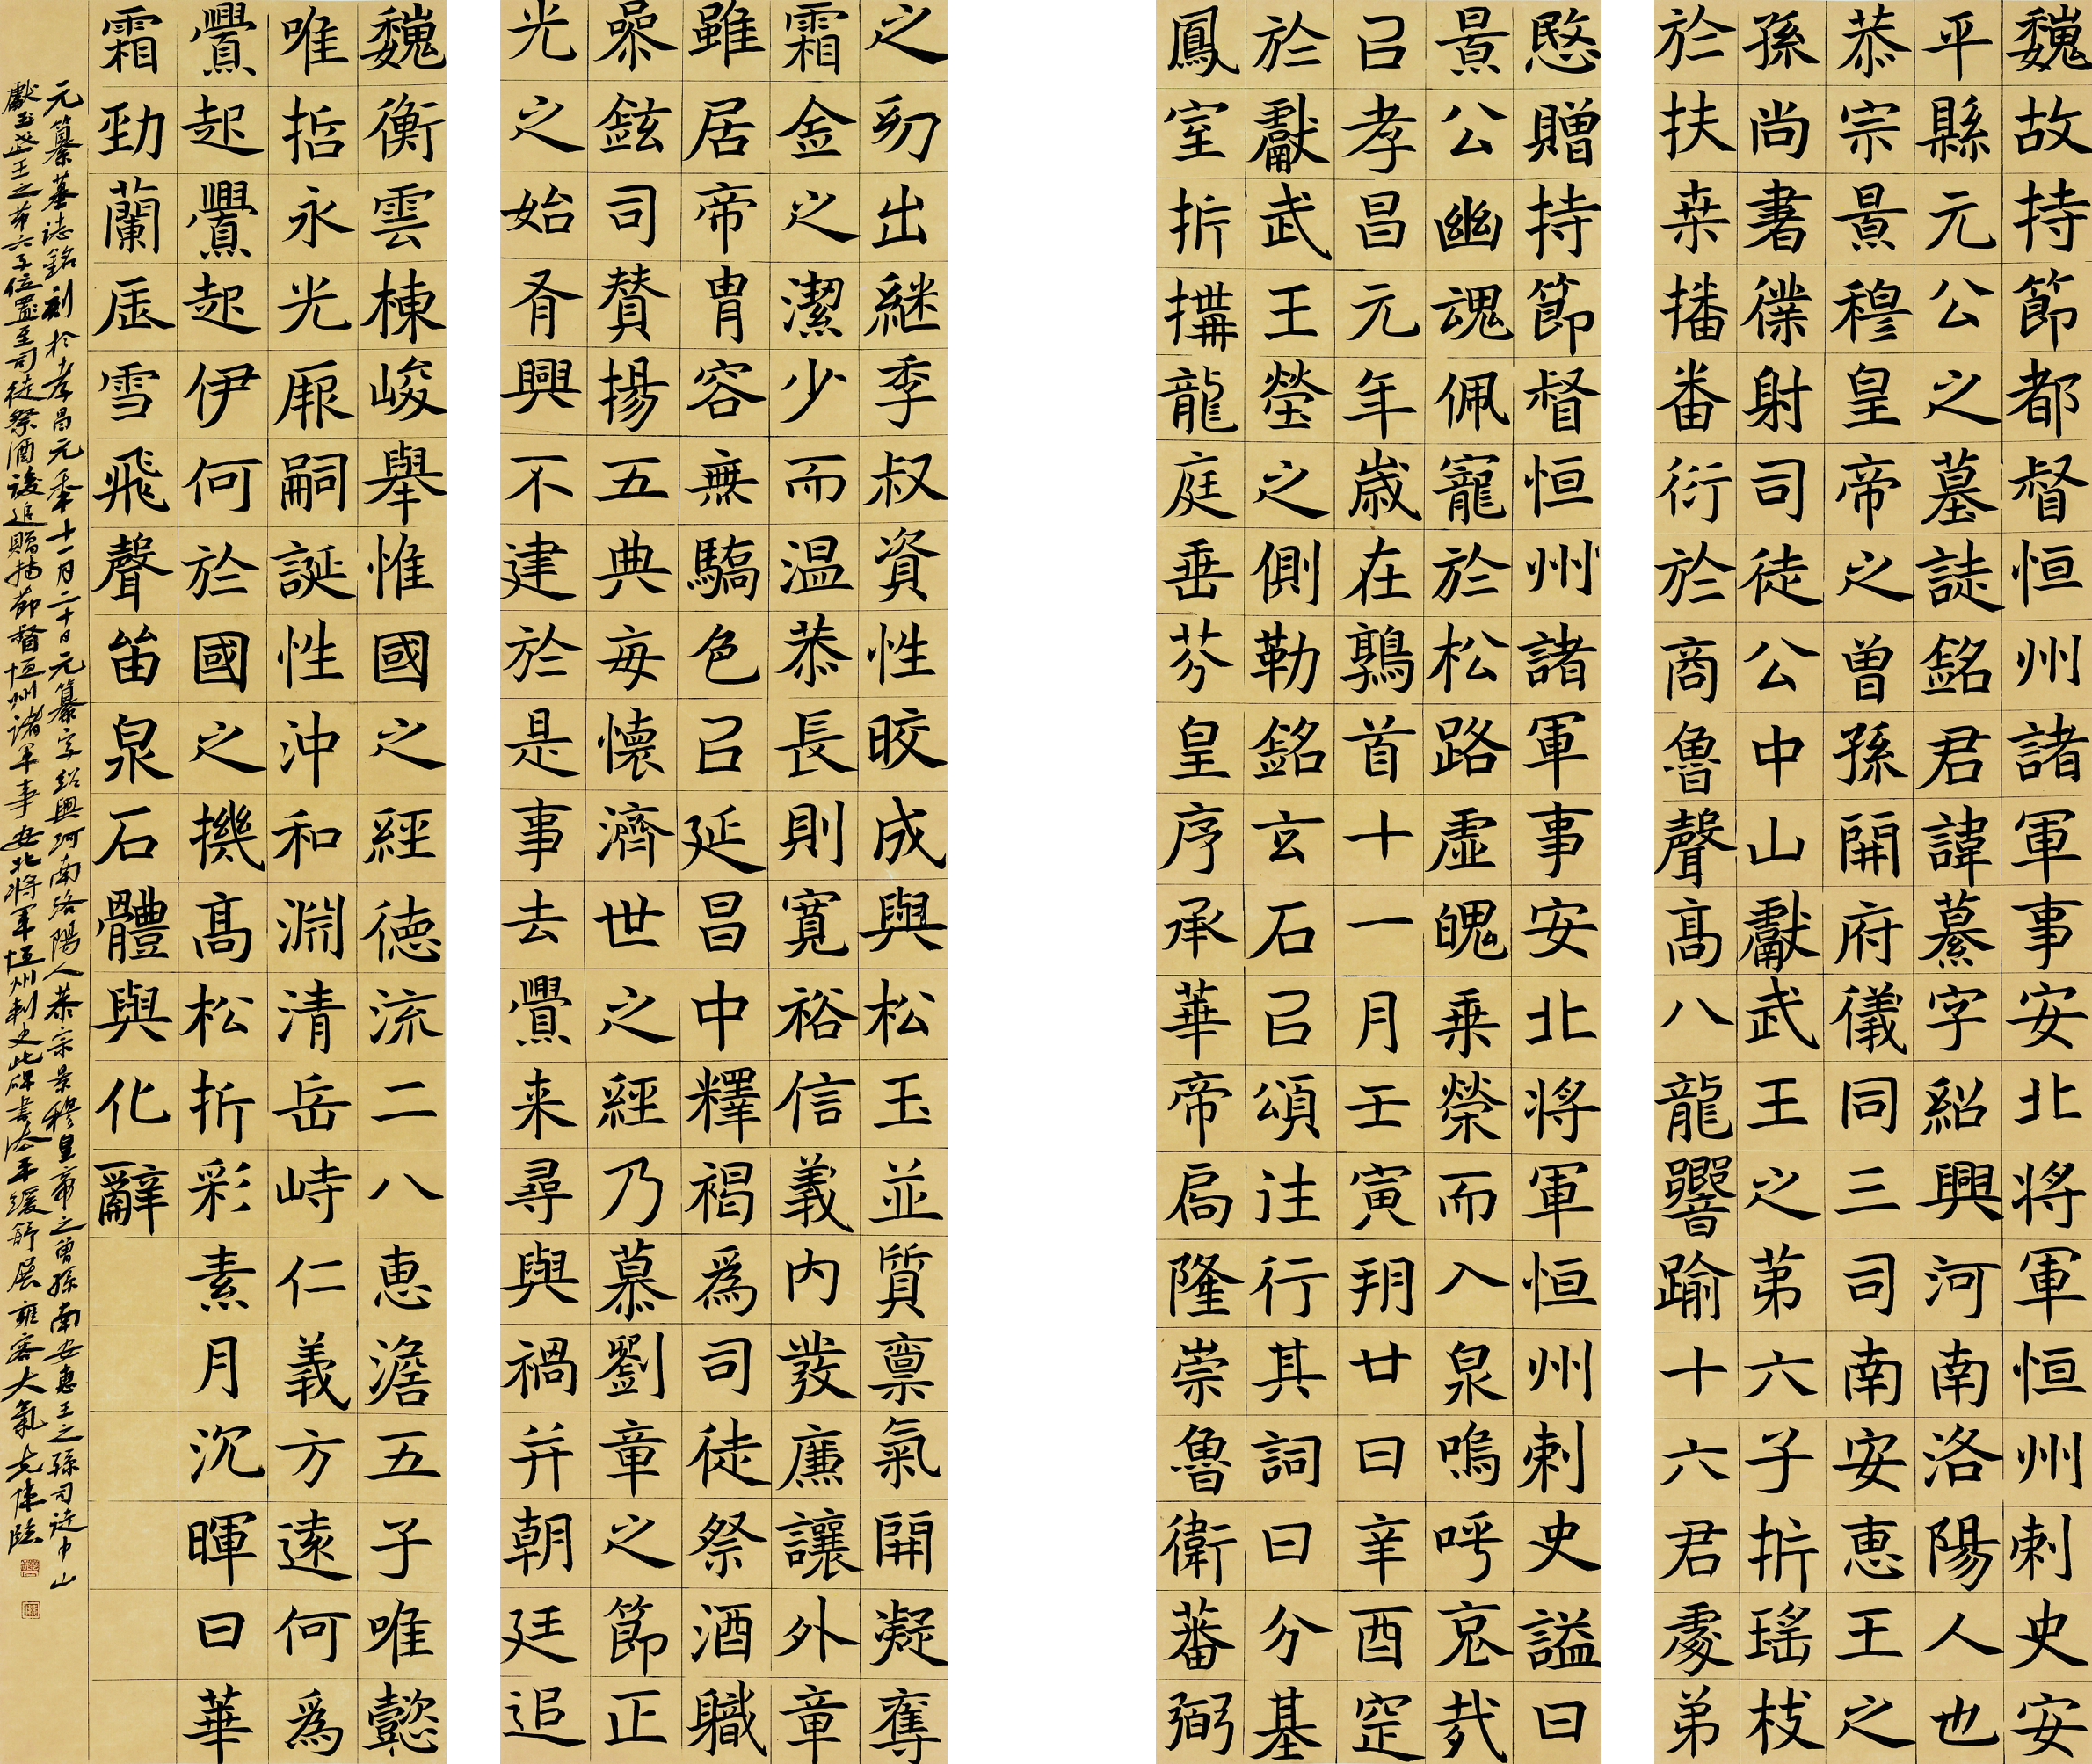 魏故持節都督恒州諸軍事安北將軍恒州刺史安
平縣元公之墓誌銘君諱纂字紹興河南洛陽人也
恭宗景穆皇帝之曾孫開府儀同三司南安惠王之
孫尚書僕射司徒公中山獻武王之苐六子折瑤枝
於扶桒播番衍於商魯聲高八龍響踰十六君處弟
愍贈持節督恒州諸軍事安北將軍恒州刺史謚曰
景公幽魂佩寵於松路虛魄乘榮而入泉嗚呼哀哉
㠯孝昌元年歲在鶉首十一月壬寅朔廿日辛酉窆
於獻武王塋之側勒銘玄石㠯頌往行其詞曰分基
鳳室折搆龍庭垂芬皇序承華帝扃隆崇魯衛蕃弼
之幼出継季叔資性晈成與松玉並質稟氣開凝奪
霜金之潔少而温恭長則寬裕信義內發廉讓外章
雖居帝胄容無驕色㠯延昌中釋褐爲司徒祭酒職
喿鉉司贊揚五典每懷濟世之經乃慕劉章之節正
光之始胥興不建於是事去釁来尋與禍并朝廷追
魏衡雲棟峻舉惟國之經德流二八惠澹五子唯懿
唯哲永光厥嗣誕性沖和淵清岳峙仁義方遠何爲
釁起釁起伊何於國之機高松折彩素月沉暉曰華
霜勁蘭辰雪飛聲留泉石體與化辭
元纂墓誌銘刻於孝昌元年十一月二十日元纂字紹興河南洛陽人恭宗景穆皇帝之曾孫南安惠王之孫司徒中山
獻武王之苐六子位置至司徒祭酒後追贈持節督恒州諸軍事安北將軍恒州刺史此碑書法平緩舒展雍容大氣志偉臨